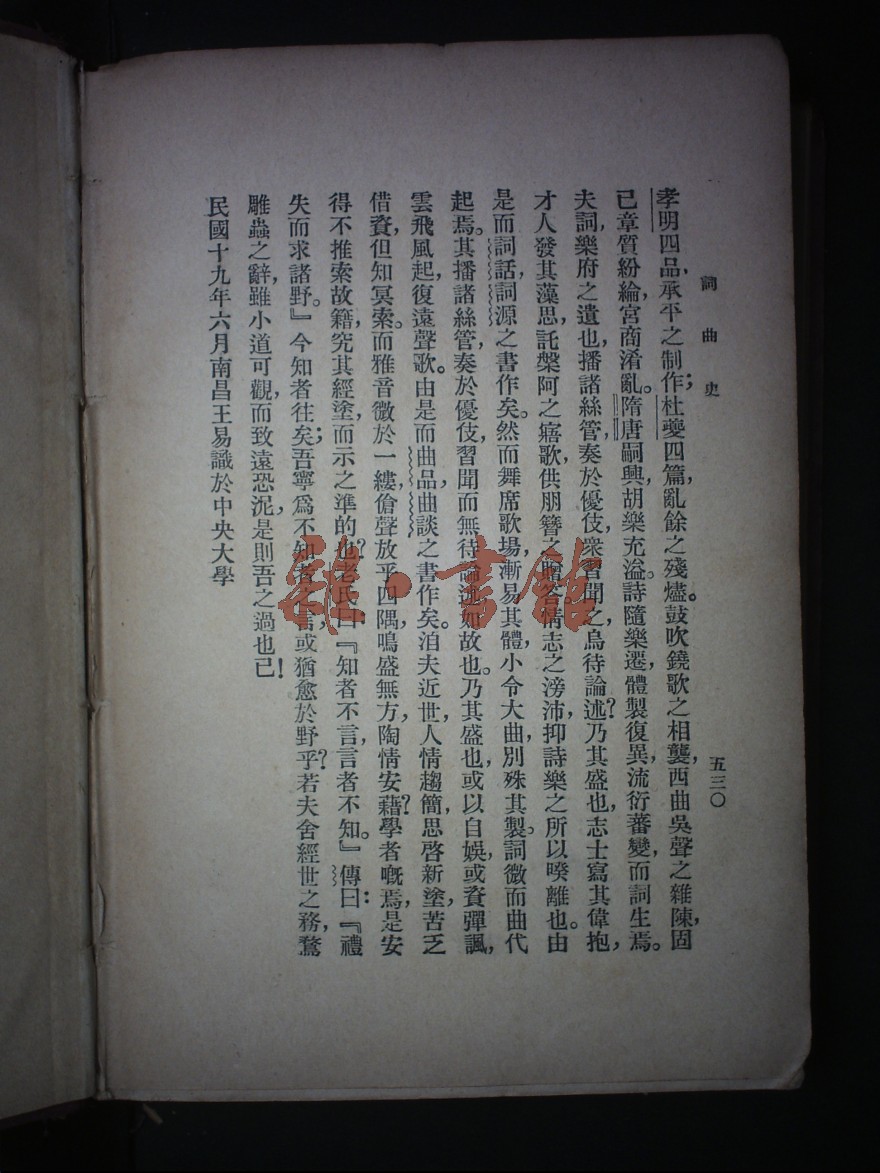 詞曲史
五三〇
孝明四品，承平之制作；杜夔四篇，亂餘之殘燼。鼓吹鐃歌之相襲，西曲吳聲之雜陳，固
已章質紛綸，宮商淆亂。隋唐嗣興，胡樂充溢。詩隨樂遷，體製復異，流衍蕃變，而詞生焉。
夫詞，樂府之遺也，播諸絲管，奏於優伎，衆習聞之，烏待論述？乃其盛也，志士寫其偉抱，
才人發其藻思，託槃阿之寤歌，供朋簪之贈答，情志之滂沛，抑詩樂之所以暌離也。由
是而詞話，詞源之書作矣。然而舞席歌場，漸易其體，小令大曲，別殊其製。詞微而曲代
起焉。其播諸絲管，奏於優伎，習聞而無待論述如故也。乃其盛也，或以自娛，或資彈諷，
雲飛風起，復遠聲歌。由是而曲品，曲談之書作矣。洎夫近世，人情趨簡，思啓新塗，苦乏
借資，但知冥索。而雅音微於一縷，傖聲放乎四隅，鳴盛無方，陶情安藉？學者嘅焉，是安
得不推索故籍，究其經塗，而示之準的也？老氏曰：『知者不言，言者不知。』傳曰：『禮
失而求諸野。』今知者往矣；吾寧爲不知者之言，或猶愈於野乎？若夫舍經世之務，騖
雕蟲之辭，雖小道可觀，而致遠恐泥，是則吾之過也已！
民國十九年六月南昌王易識於中央大學
雜·書館